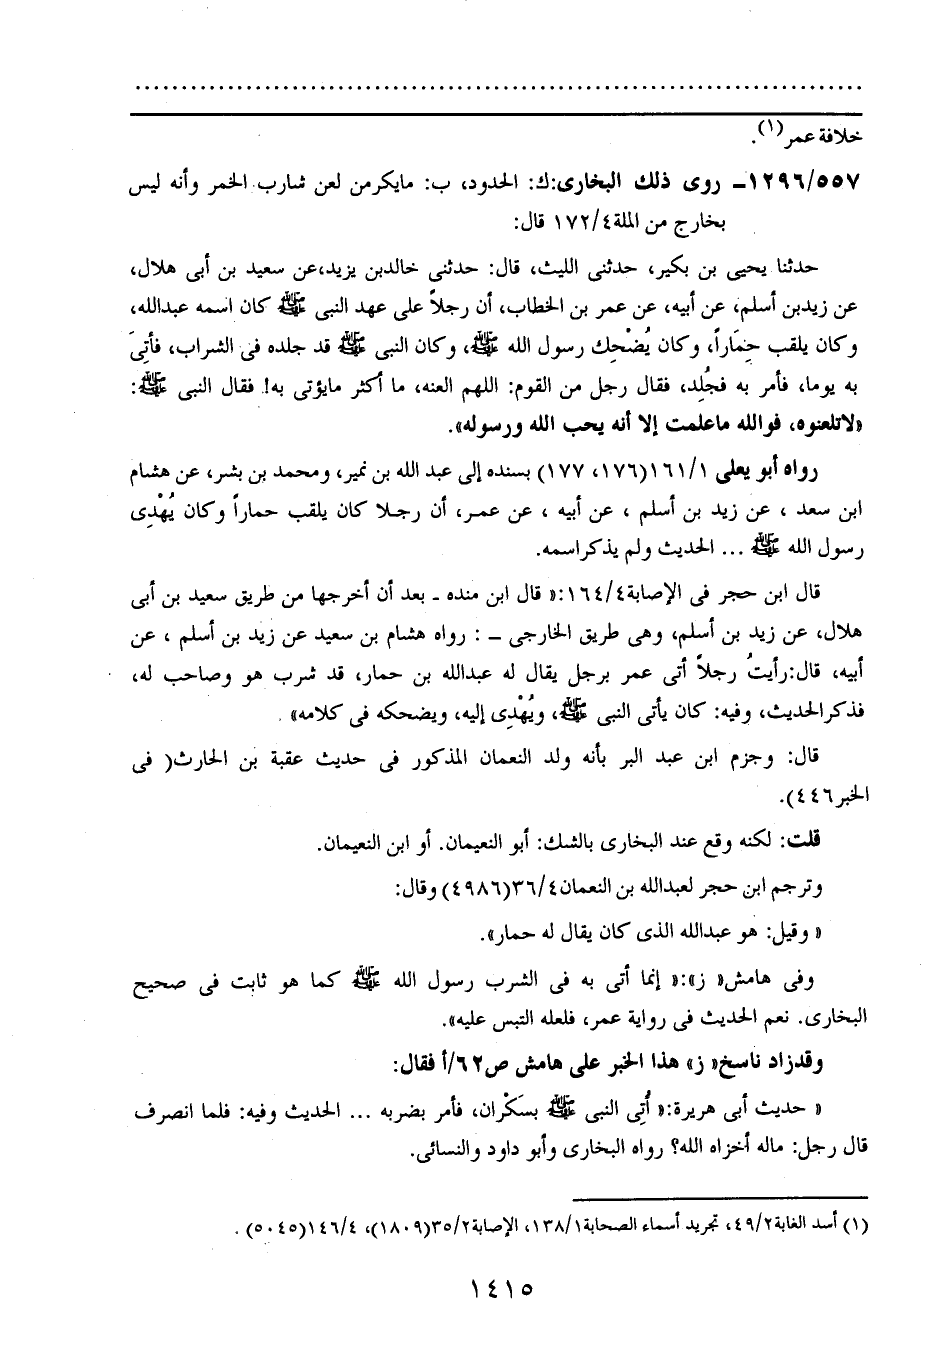 خلافة عمر(١).
١٢٩٦/٥٥٧ـ روى ذلك البخارى:ك: الحدود، ب: مايكرمن لعن شارب الخمر وأنه ليس
بخارج من الملة١٧٢/٤ قال:
حدثنا يحيى بن بكير، حدثنى الليث، قال: حدثنى خالدبن يزيد،عن سعيد بن أبى هلال،
عن زيدبن أسلم، عن أبيه، عن عمر بن الخطاب، أن رجلاً على عهد النبى ﷺ كان اسمه عبدالله،
وكان يلقب حِمَاراً، وكان يُضْحِك رسول الله ﷺ، وكان النبى ﷺ قد جلده فى الشراب، فأتِىَ
به يوما، فأمر به فجُلِد، فقال رجل من القوم: اللهم العنه، ما أكثر مايؤتى به! فقال النبى ﷺ:
«لاتلعنوه، فوالله ماعلمت إلا أنه يحب الله ورسوله».
رواه أبو يعلى ١٦١/١(١٧٦، ١٧٧) بسنده إلى عبد الله بن نمير، ومحمد بن بشر، عن هشام
ابن سعد ، عن زيد بن أسلم ، عن أبيه ، عن عمر، أن رجلا كان يلقب حماراً وكان يُهْدِى
رسول الله ﷺ ... الحديث ولم يذكراسمه.
قال ابن حجر فى الإصابة١٦٤/٤:« قال ابن منده ـ بعد أن أخرجها من طريق سعيد بن أبى
هلال، عن زيد بن أسلم، وهى طريق الخارجى ـ : رواه هشام بن سعيد عن زيد بن أسلم ، عن
أبيه، قال:رأيتُ رجلاً أتى عمر برجل يقال له عبدالله بن حمار، قد شرب هو وصاحب له،
فذكرالحديث، وفيه: كان يأتى النبى ﷺ، ويُهْدِى إليه، ويضحكه فى كلامه» .
قال: وجزم ابن عبد البر بأنه ولد النعمان المذكور فى حديث عقبة بن الحارث( فى
الخبر٤٤٦).
قلت: لكنه وقع عند البخارى بالشك: أبو النعيمان. أو ابن النعيمان.
وترجم ابن حجر لعبدالله بن النعمان٣٦/٤(٤٩٨٦) وقال:
« وقيل: هو عبدالله الذى كان يقال له حمار».
وفى هامش« ز»:« إنما أتى به فى الشرب رسول الله ﷺ كما هو ثابت فى صحيح
البخارى. نعم الحديث فى رواية عمر، فلعله التبس عليه».
وقدزاد ناسخ« ز» هذا الخبر على هامش ص٦٢/أ فقال:
« حديث أبى هريرة:« أُتِى النبى ﷺ بسَكْران، فأمر بضربه ... الحديث وفيه: فلما انصرف
قال رجل: ماله أخزاه الله؟ رواه البخارى وأبو داود والنسائى.
(١) أسد الغابة٤٩/٢، تجريد أسماء الصحابة١٣٨/١، الإصابة٣٥/٢(١٨٠٩)، ١٤٦/٤(٥٠٤٥) .
١٤١٥